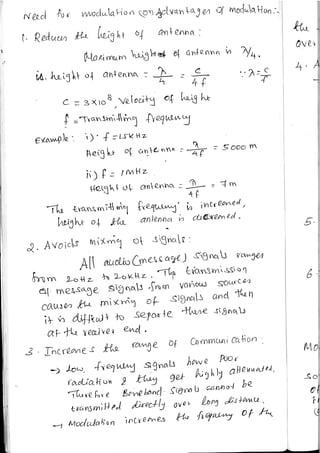 Need for modulation (or) Advantages of modulation :-
1. Reduces the height of antenna :
Maximum height of antenna is λ/4.
i.e. height of antenna = λ/4 = c/4f ∵ λ = c/f
C = 3×10⁸, Velocity of light
f = Transmitting frequency
Example : i) f = 15KHz
Height of antenna = λ/4f = 5000 m
ii) f = 1MHz
Height of antenna = λ/4f = 7m
The transmitting frequency is increased,
height of the antenna is decreased.
2. Avoids mixing of signals :
All audio (message) signals ranges
from 20Hz to 20KHz. The transmission
of message signals from various sources
causes the mixing of signals and then
it is difficult to seperate these signals
at the receiver end.
3. Increases the range of Communication :
→ low frequency signals have poor
radiation & they get highly attenuated.
Therefore Baseband Signals cannot be
transmitted directly over long distance.
→ Modulation increases the frequency of the
the
over
4.
5.
6.
Mo
So